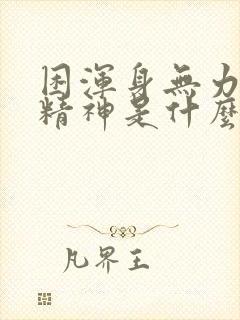 困渾身無力
精神是什麼
凡界王